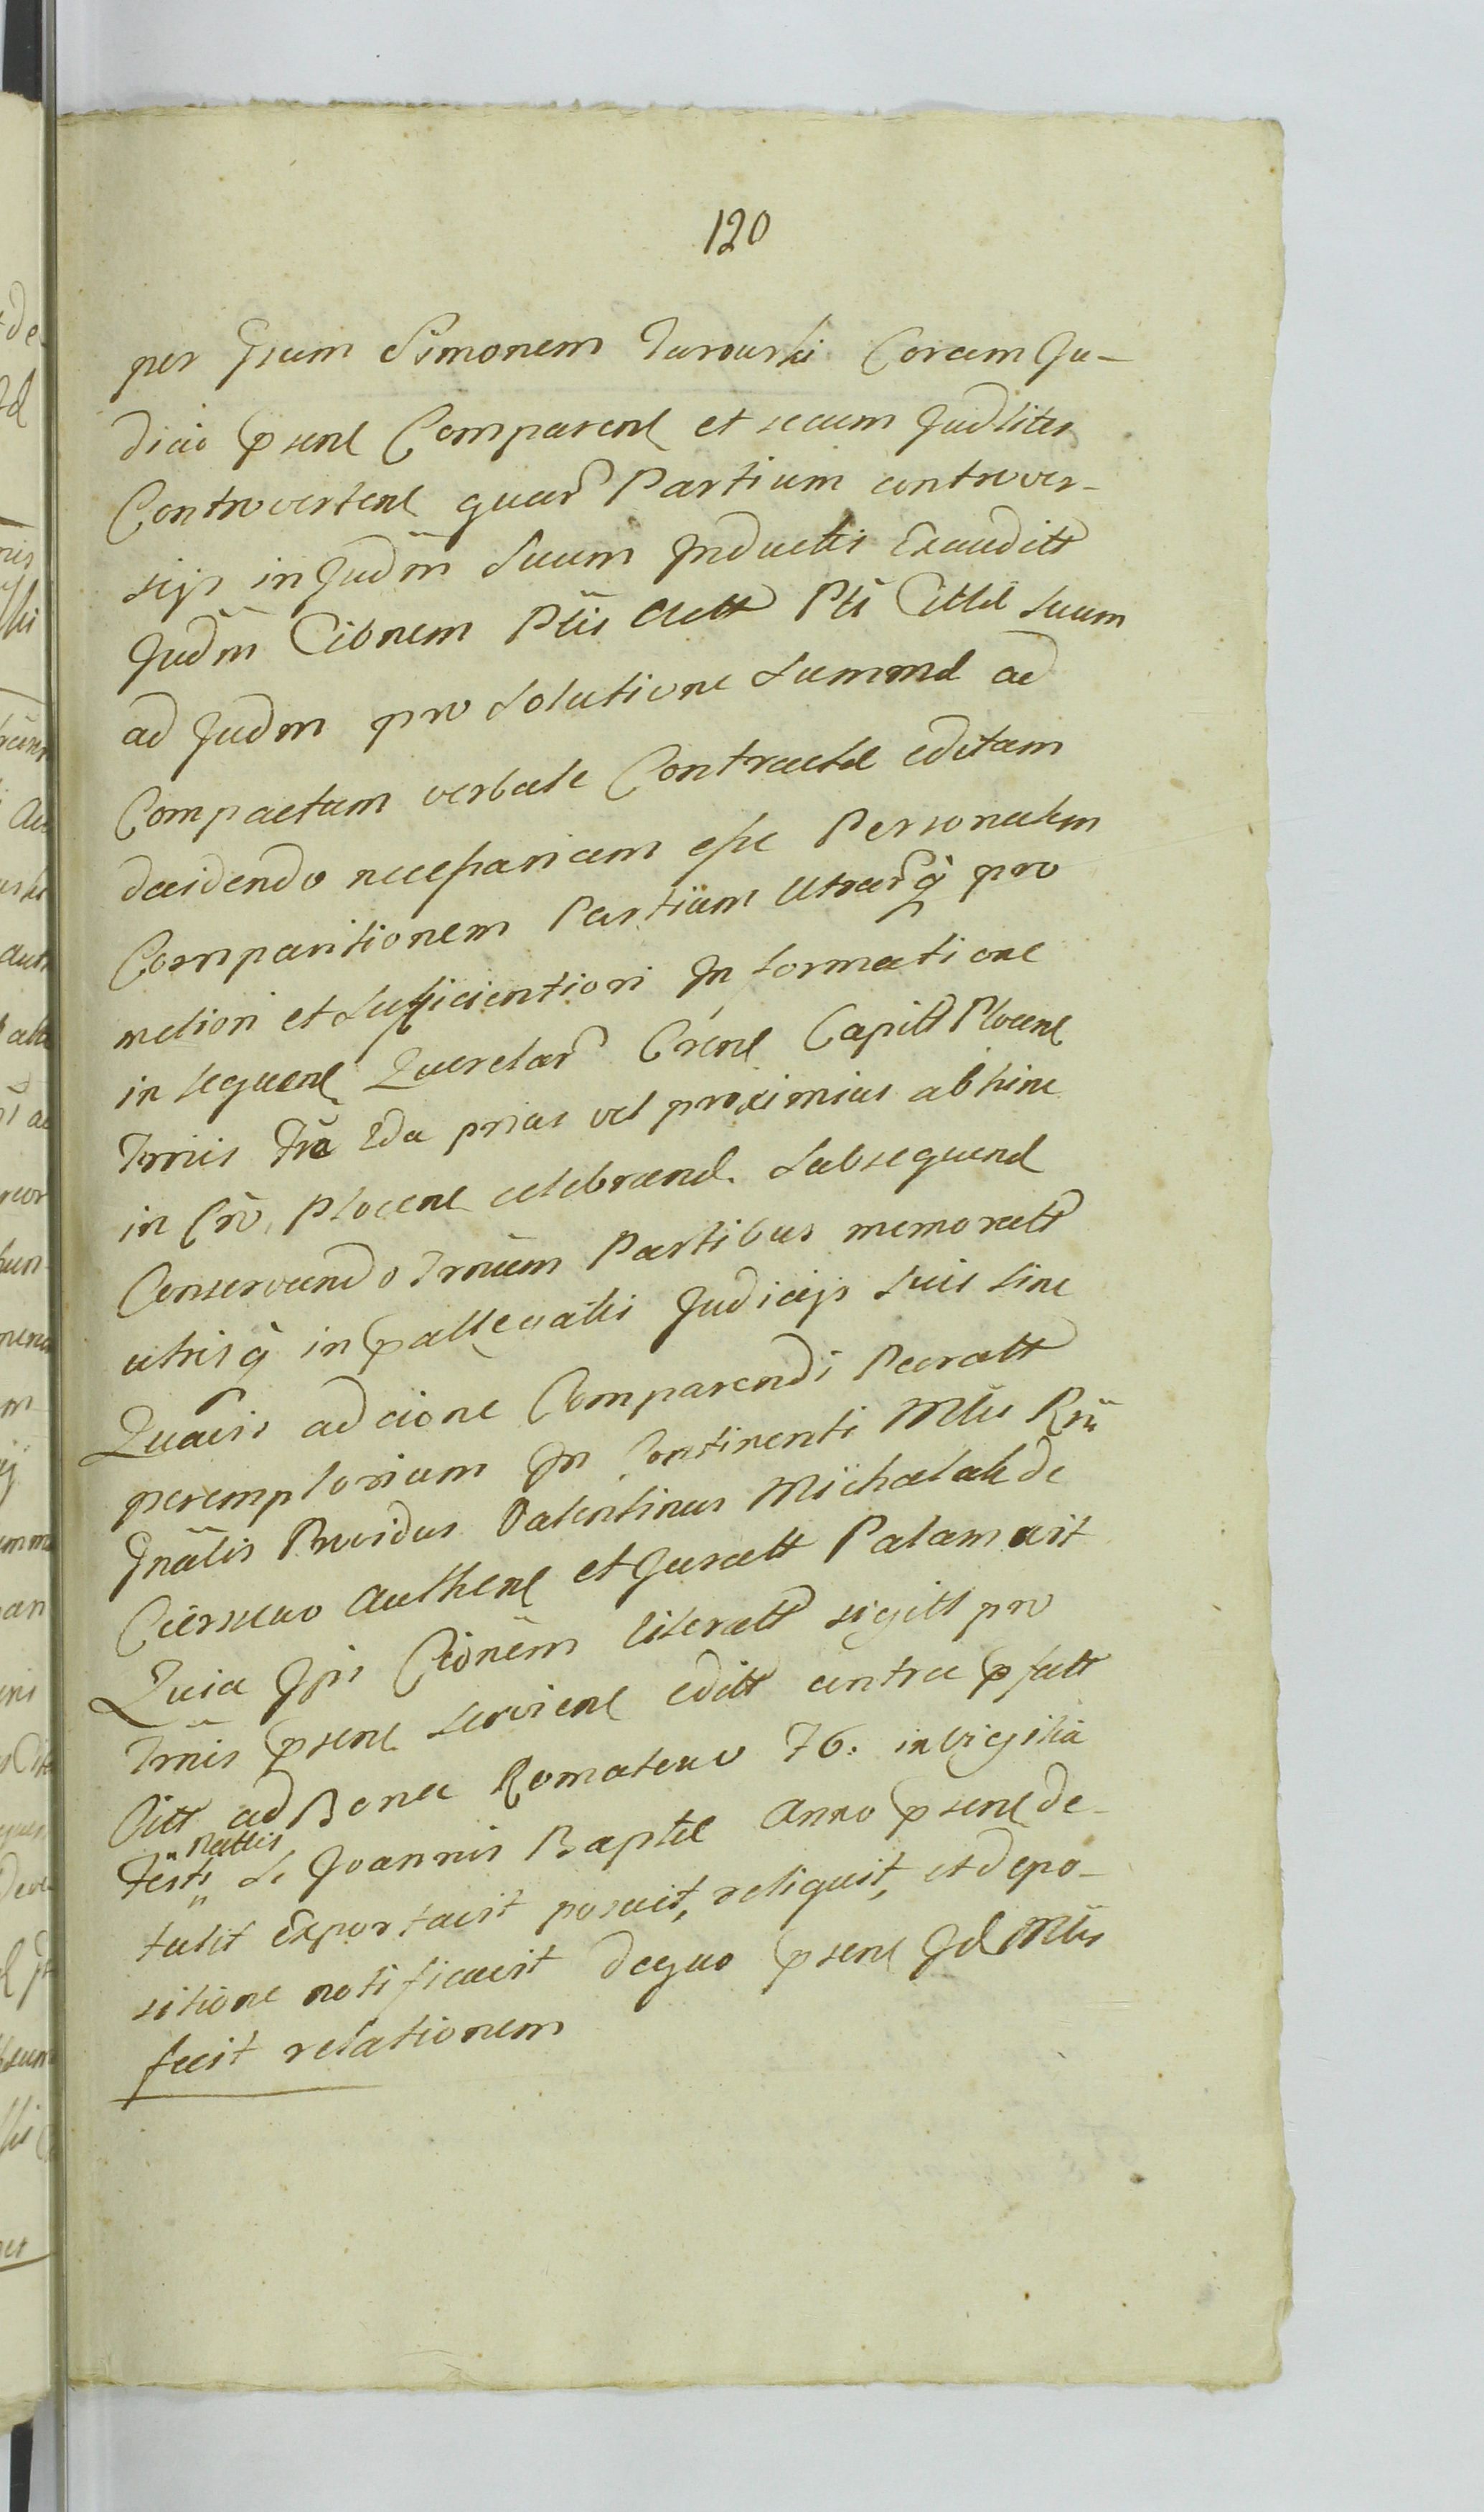 120
per Gsum Simonem Turowski Coram Ju-
dicio psent Comparent et secum Judliter
Controvertent quar Partium controver-
sijs in Judm Suum Inductis Exauditt
Judm Citõnem Ptis Actt Pti Cittd suum
ad Judm pro Solutione Summd ad
Compactam verbale Contractd editam
decidendo necessariam esse Personalem
Comparitionem Partium Utrarq pro
meliori et Sufficientiori Informatione
in sequent Querelar Crent Capitt Plocent
Trnis Fra 2da prius vel proximius abhinc
in Cro Plocent celebrand. Subsequend
Conservando Trnum Partibus memoratt
utrisq in pallegatis Judicijs Suis sine
Quavis adcione Comparendi Pecratt
peremptorium In Continenti Mtis Rni
Gnãlis Providus Valentinus Michalak de
Ciersewo authent et Juratt Palam ait
Quia Ips Citõnem literatt sigitt pro
Trnis psent servient editt contra pfatt
Citt ad Bona Romatowo 76. in Vigilia
Festi Nattis S. Joannis Baptd Anno psent de-
tulit Exportavit posuit, reliquit, et depo-
sitione notificavit dequo psent Id Mtis
fecit relationem